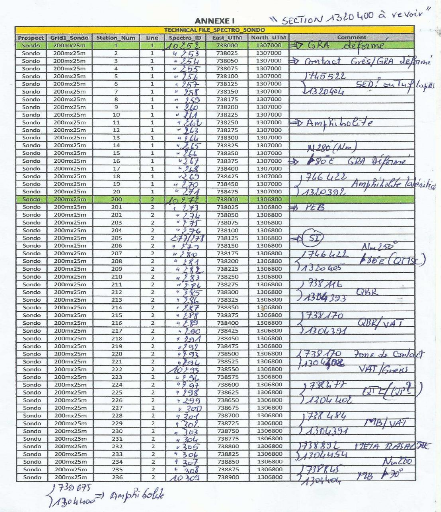 ANNEXE I
"SECTION 1320400 à revoir"
TECHNICAL FILE_SPECTRO_SONDO
Prospect Grid1_Sondo Station_Num Line Spectro_ID East_UTM North_UTM Comment
Sondo 200mx25m 1 1 10252 738000 1307000 ⇒ GRA déformé
Sondo 200mx25m 2 1 " 253 738025 1307000
Sondo 200mx25m 3 1 " 254 738050 1307000 ⇒ Contact Grès/GRA déformé
Sondo 200mx25m 4 1 " 255 738075 1307000
Sondo 200mx25m 5 1 " 256 738100 1307000
Sondo 200mx25m 6 1 " 257 738125 1307000
Sondo 200mx25m 7 1 " 258 738150 1307000
Sondo 200mx25m 8 1 " 259 738175 1307000
Sondo 200mx25m 9 1 " 260 738200 1307000
Sondo 200mx25m 10 1 " 261 738225 1307000
Sondo 200mx25m 11 1 " 262 738250 1307000 ⇒ Amphibolite
Sondo 200mx25m 12 1 " 263 738275 1307000
Sondo 200mx25m 13 1 " 264 738300 1307000
Sondo 200mx25m 14 1 " 265 738325 1307000 N280 (Nm)
Sondo 200mx25m 15 1 " 266 738350 1307000
Sondo 200mx25m 16 1 " 267 738375 1307000 ⇒ P80°E GRA Déformé
Sondo 200mx25m 17 1 " 268 738400 1307000
Sondo 200mx25m 18 1 " 269 738425 1307000
Sondo 200mx25m 19 1 " 270 738450 1307000
Sondo 200mx25m 20 1 " 271 738475 1307000
Sondo 200mx25m 200 2 10272 738000 1306800
Sondo 200mx25m 201 2 " 273 738025 1306800 ⇒ PEB
Sondo 200mx25m 202 2 " 274 738050 1306800
Sondo 200mx25m 203 2 " 275 738075 1306800
Sondo 200mx25m 204 2 " 276 738100 1306800
Sondo 200mx25m 205 2 277/278 738125 1306800 ⇒ SI
Sondo 200mx25m 206 2 " 279 738150 1306800 Nm250°
Sondo 200mx25m 207 2 " 280 738175 1306800
Sondo 200mx25m 208 2 " 281 738200 1306800
Sondo 200mx25m 209 2 " 282 738225 1306800
Sondo 200mx25m 210 2 " 283 738250 1306800
Sondo 200mx25m 211 2 " 284 738275 1306800 738116
Sondo 200mx25m 212 2 " 285 738300 1306800 QBR
Sondo 200mx25m 213 2 " 286 738325 1306800 1304393
Sondo 200mx25m 214 2 " 287 738350 1306800
Sondo 200mx25m 215 2 " 288 738375 1306800 738170
Sondo 200mx25m 216 2 " 289 738400 1306800 QBR/VAT
Sondo 200mx25m 217 2 " 290 738425 1306800 1304391
Sondo 200mx25m 218 2 " 291 738450 1306800
Sondo 200mx25m 219 2 " 292 738475 1306800
Sondo 200mx25m 220 2 " 293 738500 1306800 738170 Zone de Contact
Sondo 200mx25m 221 2 " 294 738525 1306800
Sondo 200mx25m 222 2 10295 738550 1306800 VAT/Grès
Sondo 200mx25m 223 2 " 296 738575 1306800
Sondo 200mx25m 224 2 " 297 738600 1306800
Sondo 200mx25m 225 2 " 298 738625 1306800
Sondo 200mx25m 226 2 " 299 738650 1306800 1304402
Sondo 200mx25m 227 2 " 300 738675 1306800
Sondo 200mx25m 228 2 " 301 738700 1306800 738484
Sondo 200mx25m 229 2 " 302 738725 1306800 MB/VAT
Sondo 200mx25m 230 2 " 303 738750 1306800 1304391
Sondo 200mx25m 231 2 " 304 738775 1306800
Sondo 200mx25m 232 2 " 305 738800 1306800 META BASALTE
Sondo 200mx25m 233 2 " 306 738825 1306800 1304454
Sondo 200mx25m 234 2 " 307 738850 1306800 Nm200
Sondo 200mx25m 235 2 " 308 738875 1306800 738845
Sondo 200mx25m 236 2 10309 738900 1306800 1304404 MB P70°
1304400 ⇒ Amphibolite